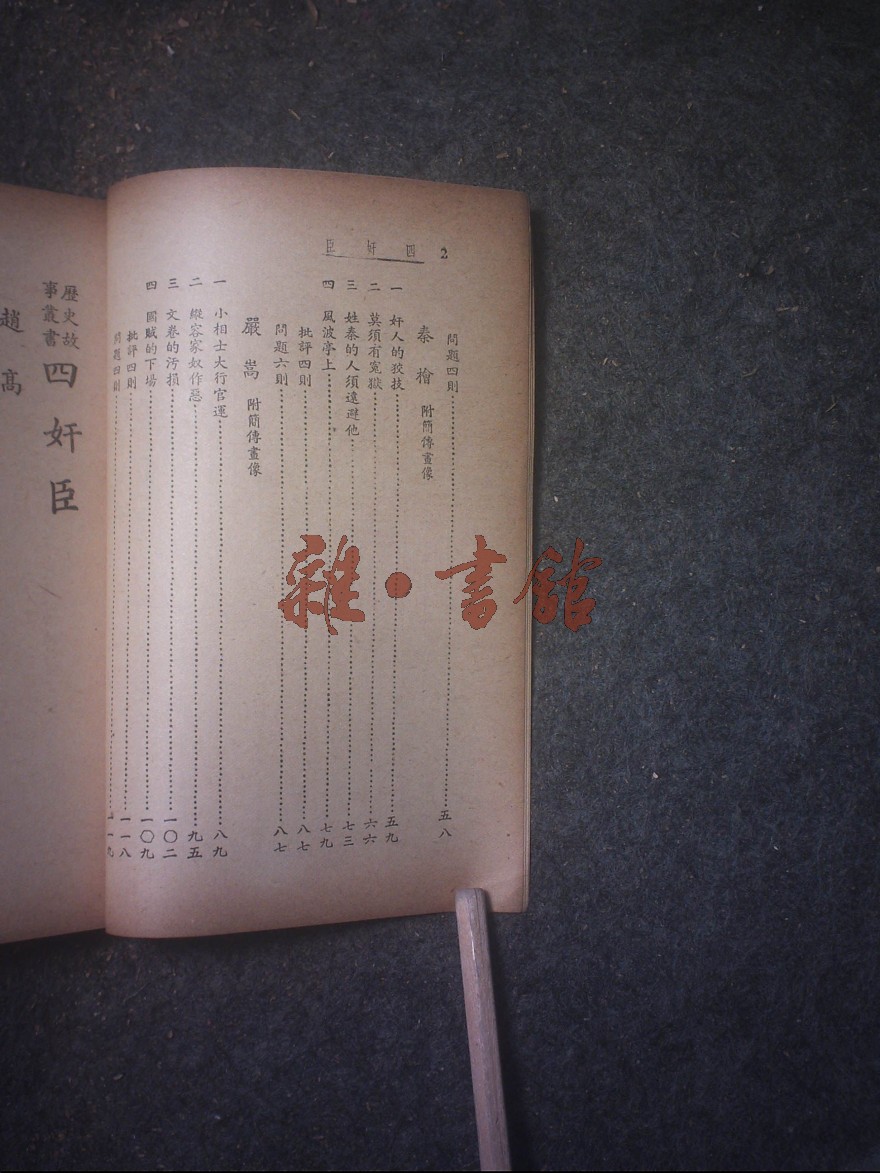 四奸臣 2
問題四則……五八
秦檜 附簡傳畫像
一 奸人的狡技……五九
二 莫須有寃獄……六六
三 姓秦的人須遠避他……七三
四 風波亭上……七九
批評四則……八七
問題六則……八七
嚴嵩 附簡傳畫像
一 小相士大行官運……八九
二 縱容家奴作惡……九五
三 文卷的汚損……一〇二
四 國賊的下場……一〇九
批評四則……一一八
問題四則……一一九
歷史故事叢書 四奸臣
趙高
雜·書館